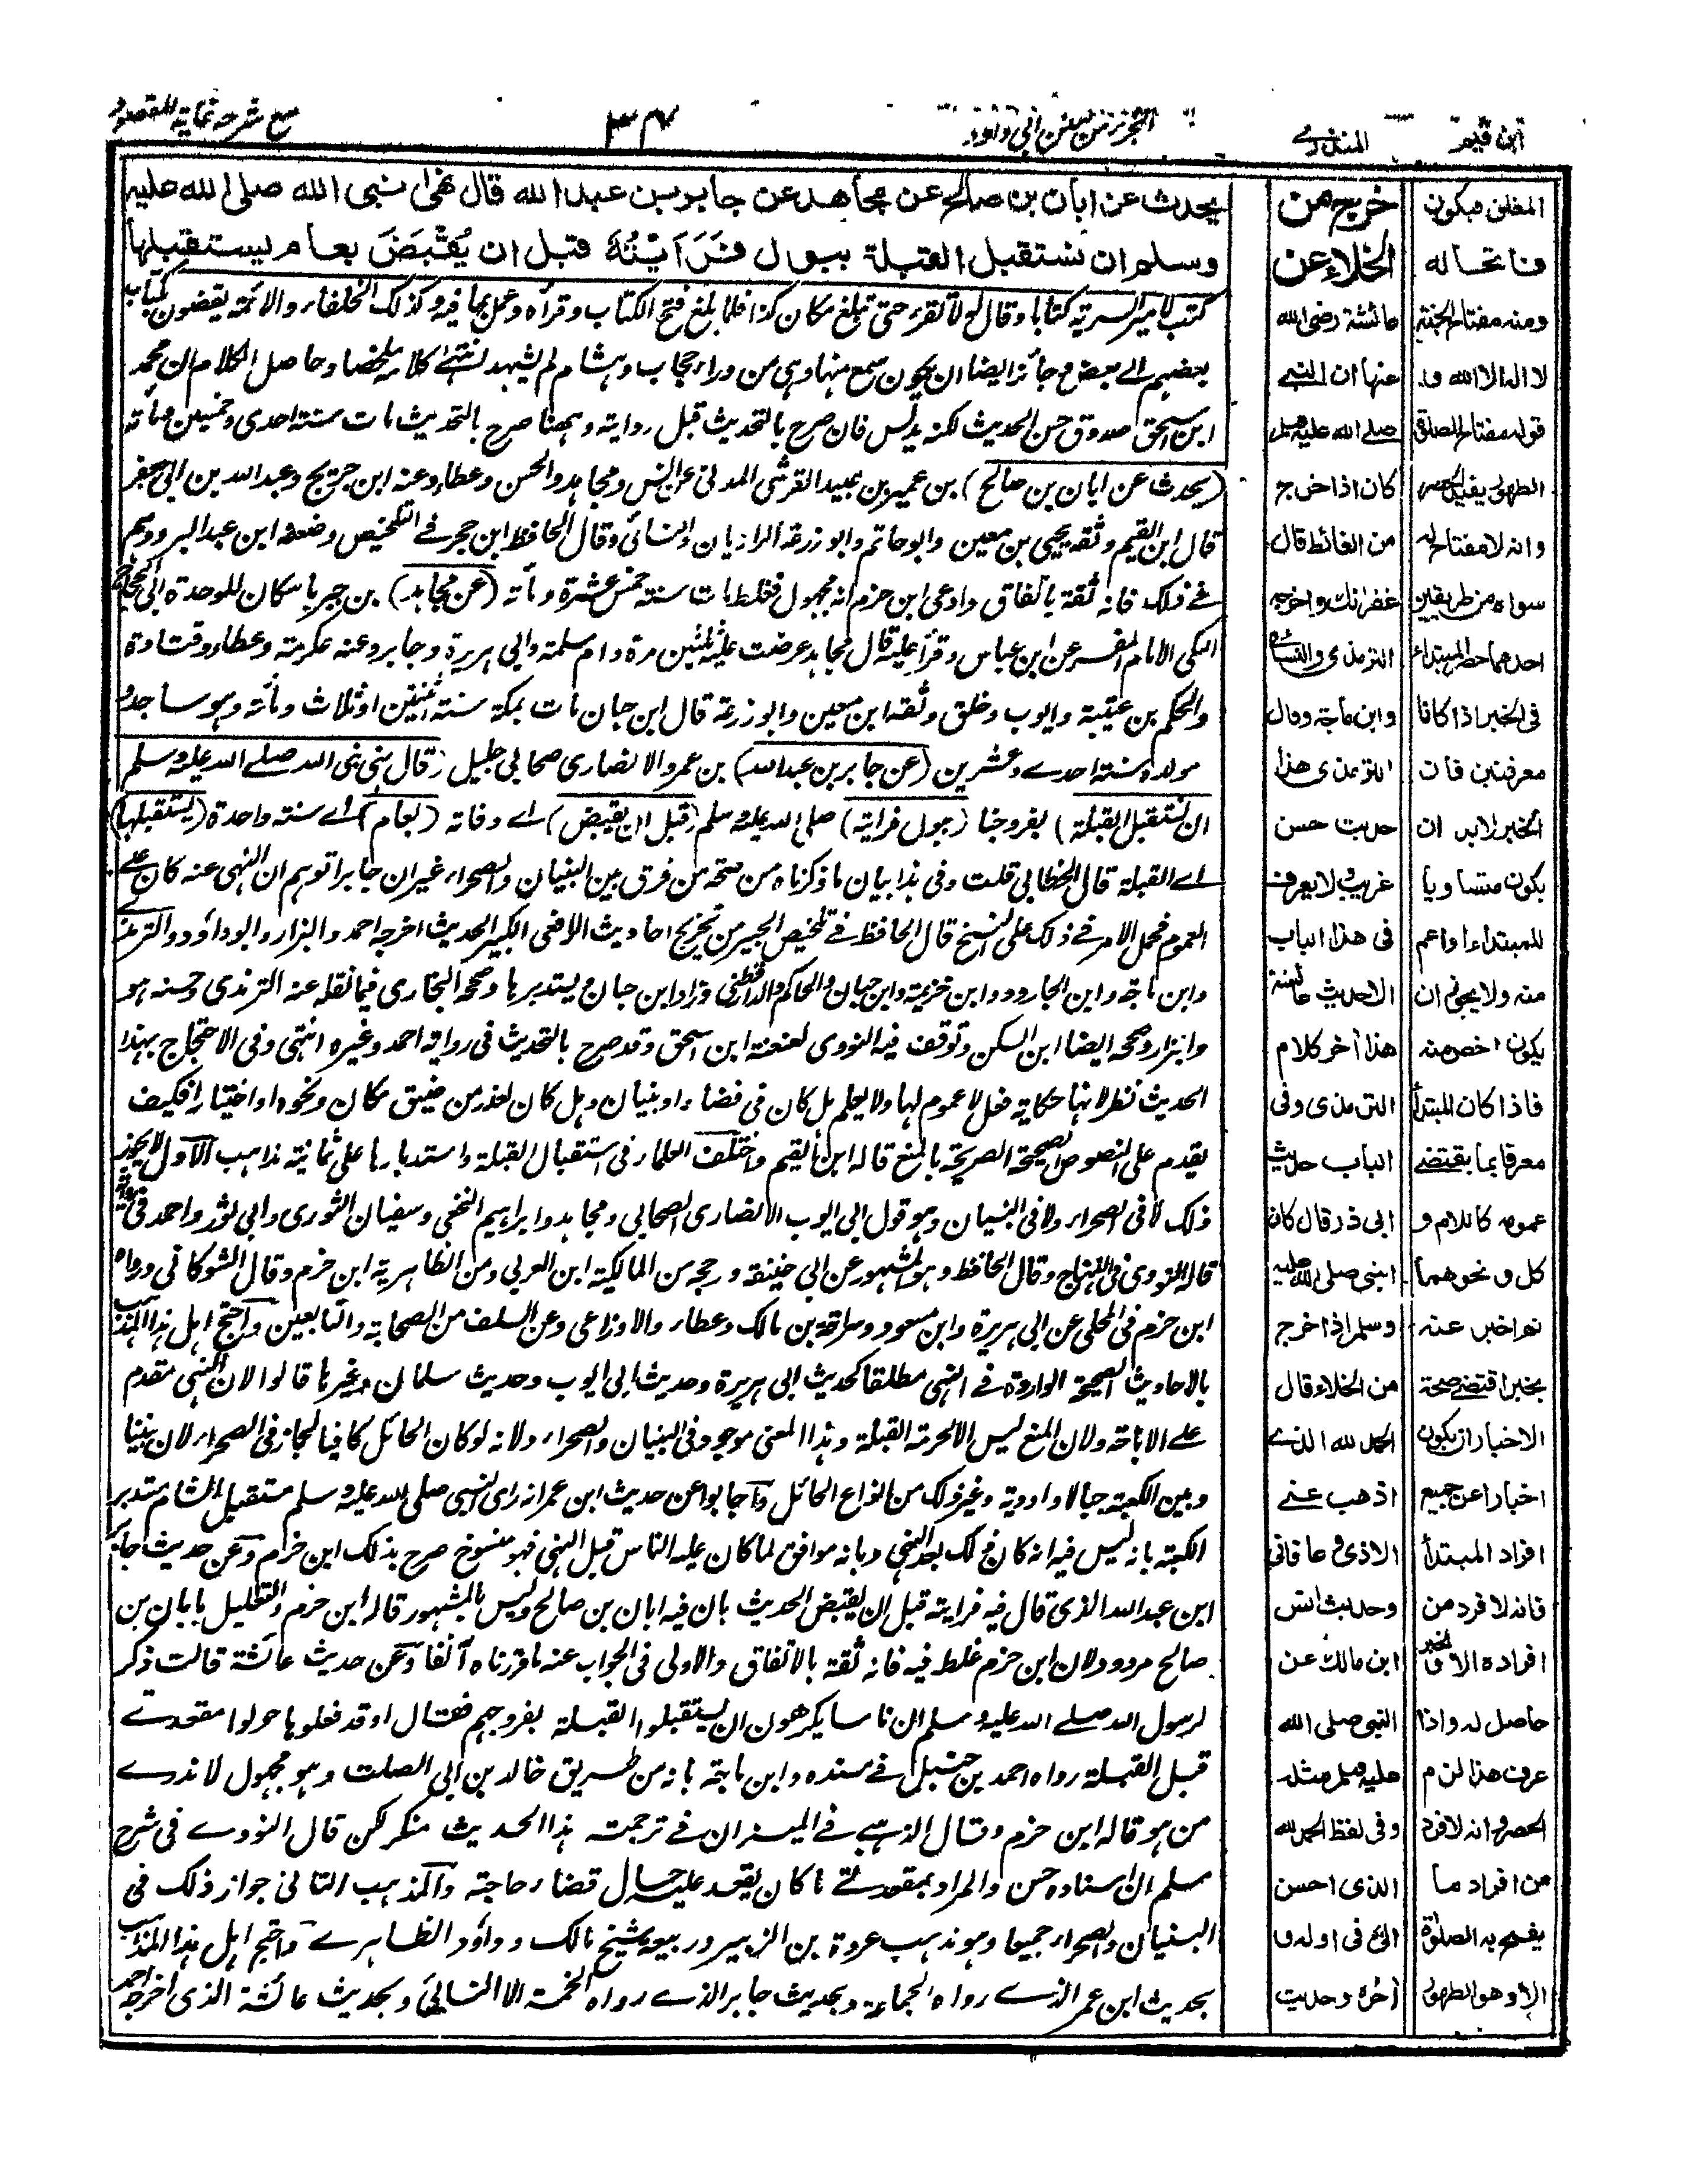 ابن قيم
المنذري
الجزء من سنن ابي داود
٣٤
مع شرحه غاية المقصود
يحدث عن ابان بن صالح عن مجاهد عن جابر بن عبد الله قال نهى نبى الله صلى الله عليه
وسلم ان نستقبل القبلة ببول فَرَأَيْتُهُ قبل ان يُقْبَضَ بعام يستقبلها
كتب لامير السرية كتابا وقال له لا تقرء حتى تبلغ مكان كذا فلما بلغ فتح الكتاب وقرأه وعمل بما فيه وكذلك الخلفاء والائمة يقضون بكتاب
بعضهم الى بعض فجائز ايضا ان يكون سمع منها وهي من وراء حجاب وهشام لم يشهد انتهى كلامه ملخصا وحاصل الكلام ان محمد
ابن اسحق صدوق حسن الحديث لكنه يدلس فان صرح بالتحديث قبل روايته وههنا صرح بالتحديث مات سنة احدى وخمسين ومأته
(يحدث عن ابان بن صالح) بن عمير بن عبيد القرشى المدنى عن انس ومجاهد والحسن وعطاء وعنه ابن جريج وعبد الله بن ابى جعفر
قال ابن القيم وثقه يحيى بن معين وابو حاتم وابو زرعة الرازيان والنسائى وقال الحافظ ابن حجر فى التلخيص وضعفه ابن عبد البر ووهم
فى ذلك فانه ثقة باتفاق وادعى ابن حزم انه مجهول فغلط مات سنة خمس عشرة ومأته (عن مجاهد) بن جبر باسكان الموحدة ابى الحجاج
المكى الامام المفسر عن ابن عباس وقرأ عليه قال مجاهد عرضت عليه ثلثين مرة وام سلمة وابى هريرة وجابر وعنه عكرمة وعطاء وقتادة
والحكم بن عتيبة وايوب وخلق وثقه ابن معين وابو زرعة قال ابن حبان مات بمكة سنة اثنتين او ثلاث ومأته وهو ساجد و
مولده سنة احدى وعشرين (عن جابر بن عبد الله) بن عمرو الانصارى صحابى جليل (قال نهى نبى الله صلى الله عليه وسلم
ان نستقبل القبلة) بفروجنا (ببول فرايته) صلى الله عليه وسلم (قبل ان يقبض) اى وفاته (بعام) اى سنة واحدة (يستقبلها)
اى القبلة قال الخطابى قلت وفى هذا بيان ما ذكرناه من صحة من فرق بين البنيان والصحراء غير ان جابرا توهم ان النهى عنه كان على
العموم فحمل الامر فى ذلك على النسخ قال الحافظ فى تلخيص الحبير من تخريج احاديث الرافعى الكبير الحديث اخرجه احمد والبزار وابو داؤد والترمذى
وابن ماجة وابن الجارود وابن خزيمة وابن حبان والحاكم والدارقطنى وزاد ابن حبان ويستدبرها وصححه البخارى فيما نقله عنه الترمذى وحسنه هو
والبزار وصححه ايضا ابن السكن وتوقف فيه النووى لعنعنة ابن اسحق وقد صرح بالتحديث فى رواية احمد وغيره انتهى وفى الاحتجاج بهذا
الحديث نظر لانها حكاية فعل لا عموم لها ولا يعلم هل كان فى فضاء او بنيان وهل كان لعذر من ضيق مكان ونحوه او اختيارا فكيف
يقدم على النصوص الصحيحة الصريحة بالمنع قاله ابن القيم واختلف العلماء فى استقبال القبلة واستدبارها على ثمانية مذاهب الاول لا يجوز
ذلك لا فى الصحراء ولا فى البنيان وهو قول ابى ايوب الانصارى الصحابى ومجاهد وابراهيم النخعى وسفيان الثورى وابى ثور واحمد فى رواية
قاله النووى فى المنهاج وقال الحافظ وهو المشهور عن ابى حنيفة ورجحه من المالكية ابن العربى ومن الظاهرية ابن حزم وقال الشوكانى ورواه
ابن حزم فى المحلى عن ابى هريرة وابن مسعود وسراقة بن مالك وعطاء والاوزاعى وعن السلف من الصحابة والتابعين واحتج اهل هذا المذهب
بالاحاديث الصحيحة الواردة فى النهى مطلقا كحديث ابى هريرة وحديث ابى ايوب وحديث سلمان وغيرها قالوا لان النهى مقدم
على الاباحة ولان المنع ليس الا لحرمة القبلة وهذا المعنى موجود فى البنيان والصحراء ولانه لو كان الحائل كافيا لجاز فى الصحراء لان بيننا
وبين الكعبة جبالا واودية وغير ذلك من انواع الحائل واجابوا عن حديث ابن عمر انه راى النبى صلى الله عليه وسلم مستقبل الشام مستدبر
الكعبة بانه ليس فيه انه كان ذلك بعد النهى وبانه موافق لما كان عليه الناس قبل النهى فهو منسوخ صرح بذلك ابن حزم وعن حديث جابر
ابن عبد الله الذى قال فيه فرايته قبل ان يقبض الحديث بان فيه ابان بن صالح وليس بالمشهور قاله ابن حزم والتعليل بابان بن
صالح مردود لان ابن حزم غلط فيه فانه ثقة بالاتفاق والاولى فى الجواب عنه ما قررناه آنفا وعن حديث عائشة قالت ذكر
لرسول الله صلى الله عليه وسلم ان ناسا يكرهون ان يستقبلوا القبلة بفروجهم فقال اوقد فعلوها حولوا مقعدتى
قبل القبلة رواه احمد بن حنبل فى مسنده وابن ماجة بانه من طريق خالد بن ابى الصلت وهو مجهول لا ندرى
من هو قاله ابن حزم وقال الذهبى فى الميزان فى ترجمته هذا الحديث منكر لكن قال النووى فى شرح
مسلم ان اسناده حسن والمراد بمقعدتى ما كان يقعد عليه حال قضاء حاجته والمذهب الثانى جواز ذلك فى
البنيان والصحراء جميعا وهو مذهب عروة بن الزبير وربيعة شيخ مالك وداؤد الظاهرى واحتج اهل هذا المذهب
بحديث ابن عمر الذى رواه الجماعة وبحديث جابر الذى رواه الخمسة الا النسائى وبحديث عائشة الذى اخرجه احمد
خرج من
الخلاء عن
عائشة رضى الله
عنها ان النبى
صلى الله عليه وسلم
كان اذا خرج
من الغائط قال
غفرانك واخرجه
الترمذى والنسائى
وابن ماجة وقال
الترمذى هذا
حديث حسن
غريب لا يعرف
فى هذا الباب
الا حديث عائشة
هذا آخر كلام
الترمذى وفى
الباب حديث
ابى ذر قال كان
النبى صلى الله عليه
وسلم اذا خرج
من الخلاء قال
الحمد لله الذى
اذهب عنى
الاذى وعافانى
وحديث انس
ابن مالك عن
النبى صلى الله
عليه وسلم مثله
وفى لفظ الحمد لله
الذى احسن
الى فى اوله و
آخره وحديث
المغلق فيكون
فاتحا له
ومنه مفتاح الجنة
لا اله الا الله و
قوله مفتاح الصلوة
الطهور يفيد الحصر
وانه لا مفتاح له
سواه من طريقين
احدهما حصر المبتداء
فى الخبر اذا كانا
معرفتين فان
الخبر لابد ان
يكون مساويا
للمبتداء او اعم
منه ولا يجوز ان
يكون اخص منه
فاذا كان المبتدأ
معرفا بما يقتضى
عمومه كاللام و
كل ونحوهما
ثم اخبر عنه
بخبر اقتضى صحة
الاخبار ان يكون
اخبارا عن جميع
افراد المبتدأ
فانه لا فرد من
افراده الا والخبر
حاصل له واذا
عرف هذا لزم
الحصر وانه لا فرد
من افراد ما
يفتتح به الصلوة
الا وهو الطهور